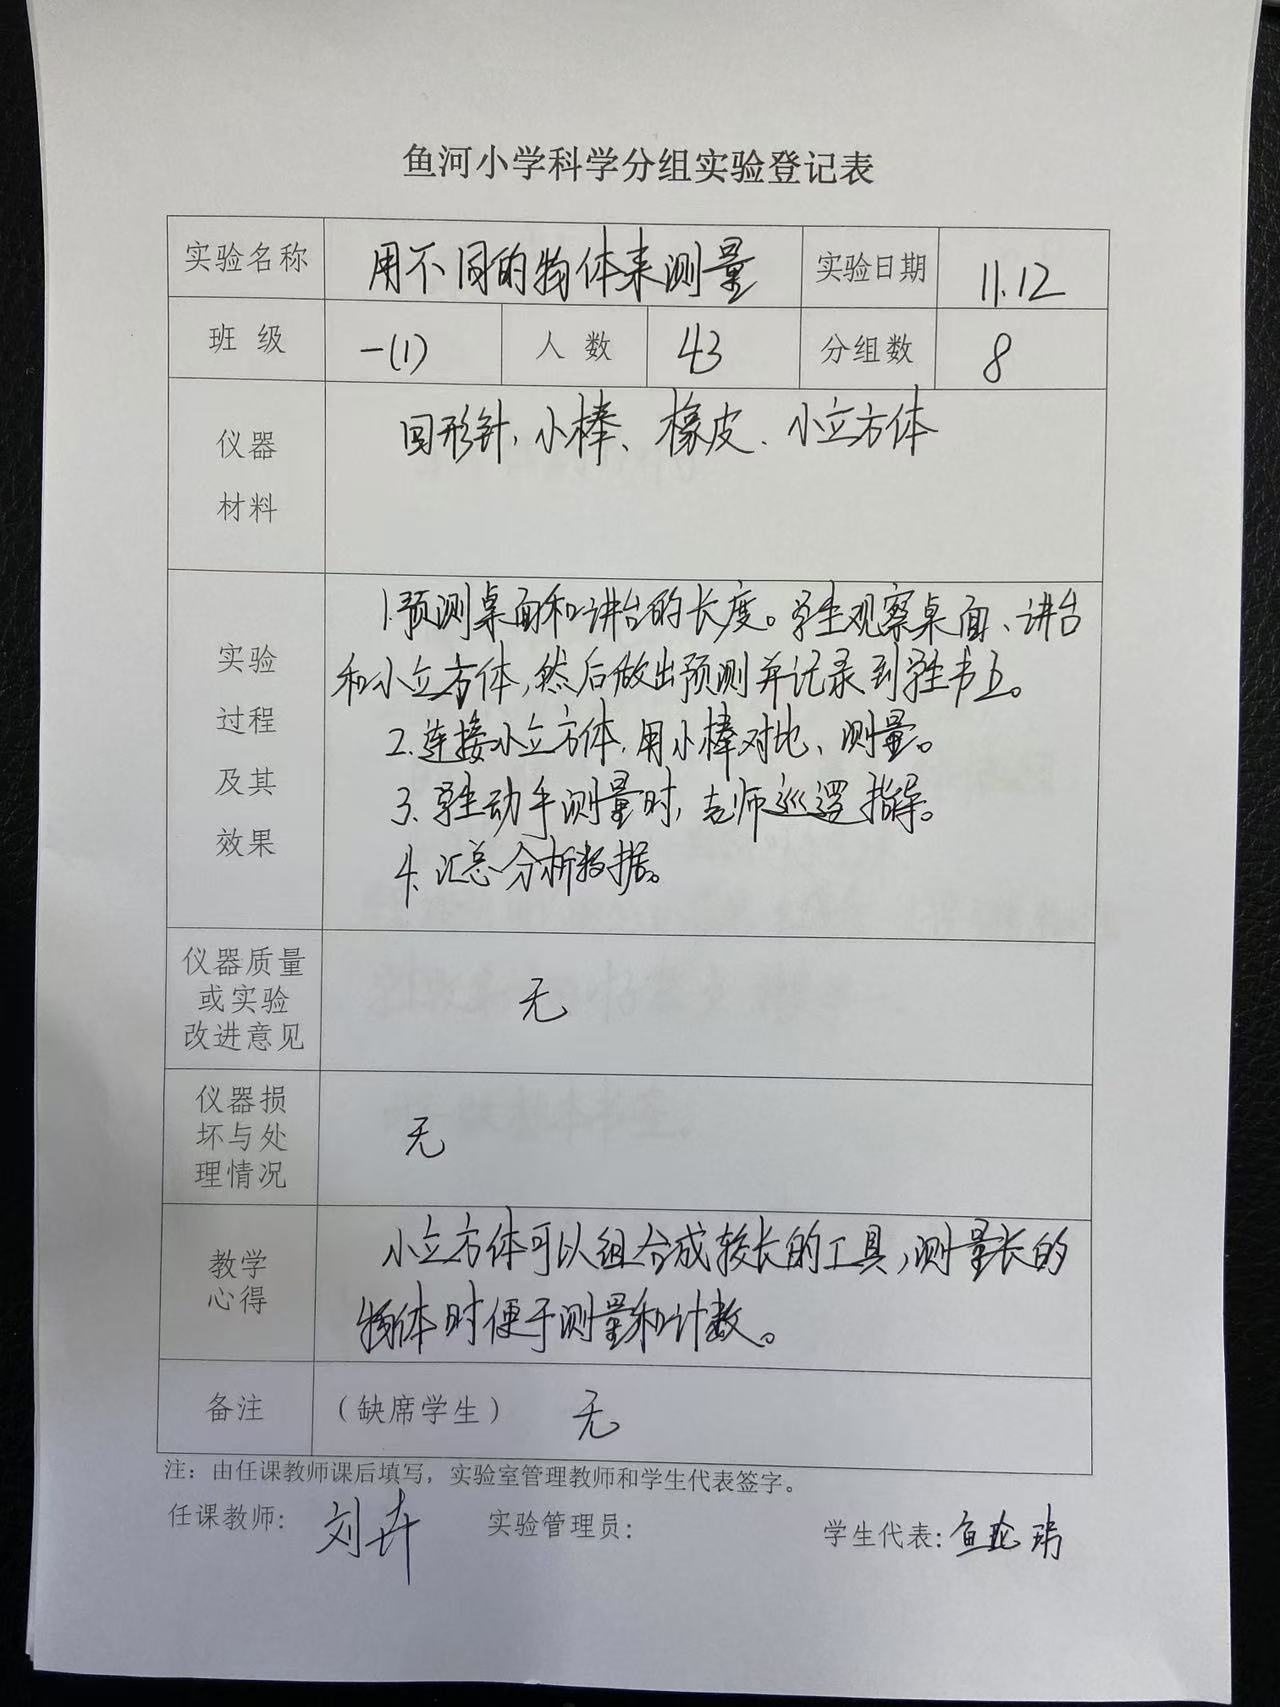 鱼河小学科学分组实验登记表
实验名称 用不同的物体来测量 实验日期 11.12
班 级 一(1) 人 数 43 分组数 8
仪器
材料
回形针、小棒、橡皮、小立方体
实验
过程
及其
效果
1.预测桌面和讲台的长度。学生观察桌面、讲台
和小立方体,然后做出预测并记录到学生书上。
2.连接小立方体,用小棒对比、测量。
3.学生动手测量时,老师巡逻指导。
4.汇总分析数据。
仪器质量
或实验
改进意见
无
仪器损
坏与处
理情况
无
教学
心得
小立方体可以组合成较长的工具,测量长的
物体时便于测量和计数。
备注 (缺席学生) 无
注：由任课教师课后填写，实验室管理教师和学生代表签字。
任课教师: 刘卉 实验管理员: 学生代表: 鱼